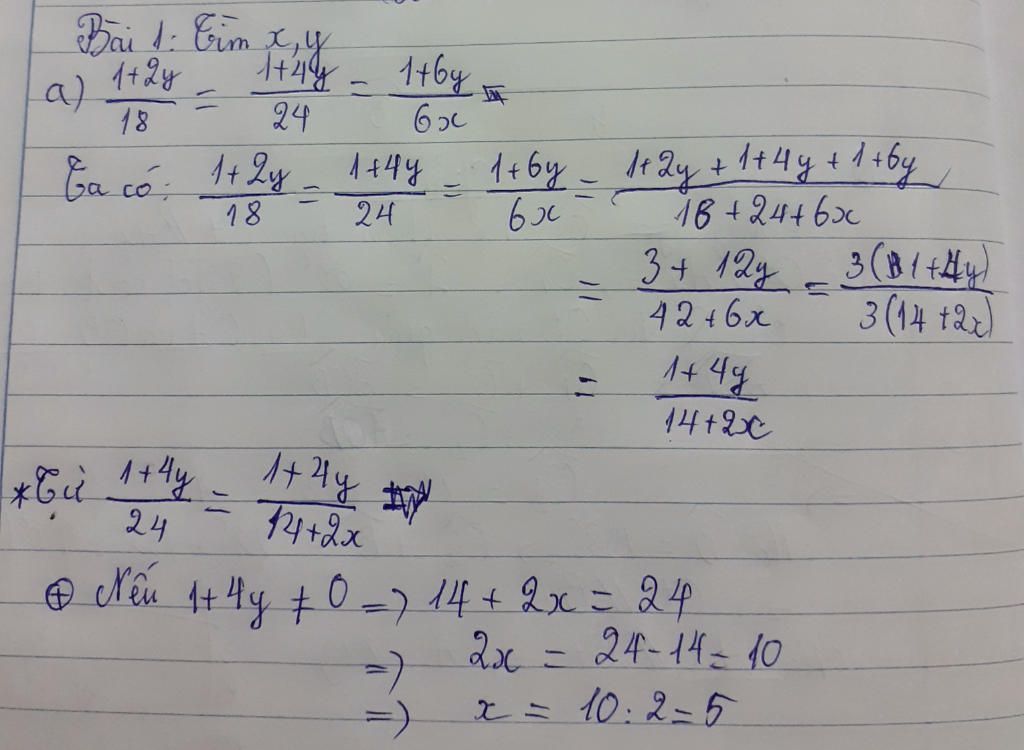 Bài 1: Tìm x, y
a) (1+2y)/18 = (1+4y)/24 = (1+6y)/6x
Ta có: (1+2y)/18 = (1+4y)/24 = (1+6y)/6x = (1+2y+1+4y+1+6y)/(18+24+6x)
= (3+12y)/(42+6x) = 3(1+4y)/3(14+2x)
= (1+4y)/(14+2x)
* Từ (1+4y)/24 = (1+4y)/(14+2x)
⊕ Nếu 1+4y ≠ 0 => 14+2x = 24
=> 2x = 24-14 = 10
=> x = 10:2 = 5